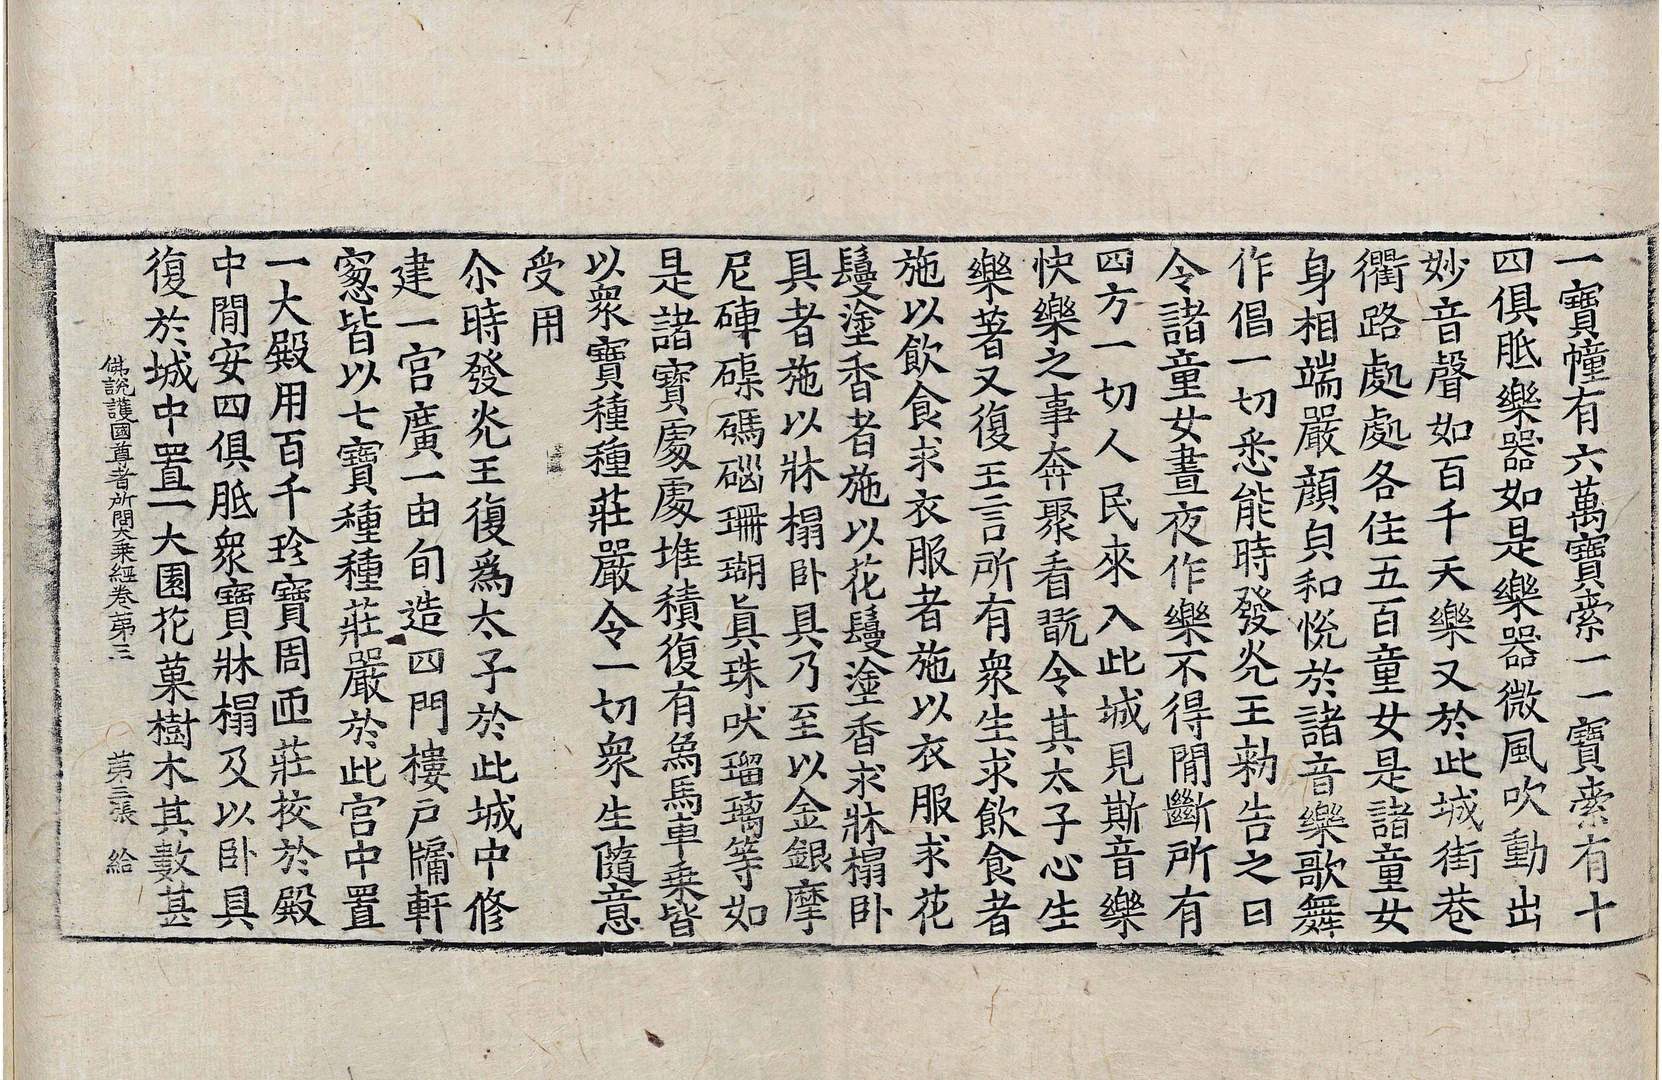 一寶幢有六萬寶索一一寶索有十
四俱胝樂器如是樂器微風吹動出
妙音聲如百千天樂又於此城街巷
衢路處處各住五百童女是諸童女
身相端嚴顔皃和悅於諸音樂歌舞
作倡一切悉能時發光王勑告之曰
令諸童女晝夜作樂不得閒斷所有
四方一切人民來入此城見斯音樂
快樂之事奔聚看翫令其太子心生
樂著又復王言所有衆生求飲食者
施以飲食求衣服者施以衣服求花
鬘塗香者施以花鬘塗香求牀榻卧
具者施以牀榻卧具乃至以金銀摩
尼硨磲碼碯珊瑚眞珠吠瑠璃等如
是諸寶處處堆積復有象馬車乗皆
以衆寶種種莊嚴令一切衆生隨意
受用
尒時發光王復爲太子於此城中修
建一宮廣一由旬造四門樓戶牖軒
窓皆以七寶種種莊嚴於此宮中置
一大殿用百千珍寶周匝莊校於殿
中閒安四俱胝衆寶牀榻及以卧具
復於城中置一大園花菓樹木其數甚
佛說護國尊者所問大乗經卷第三 第三張 給